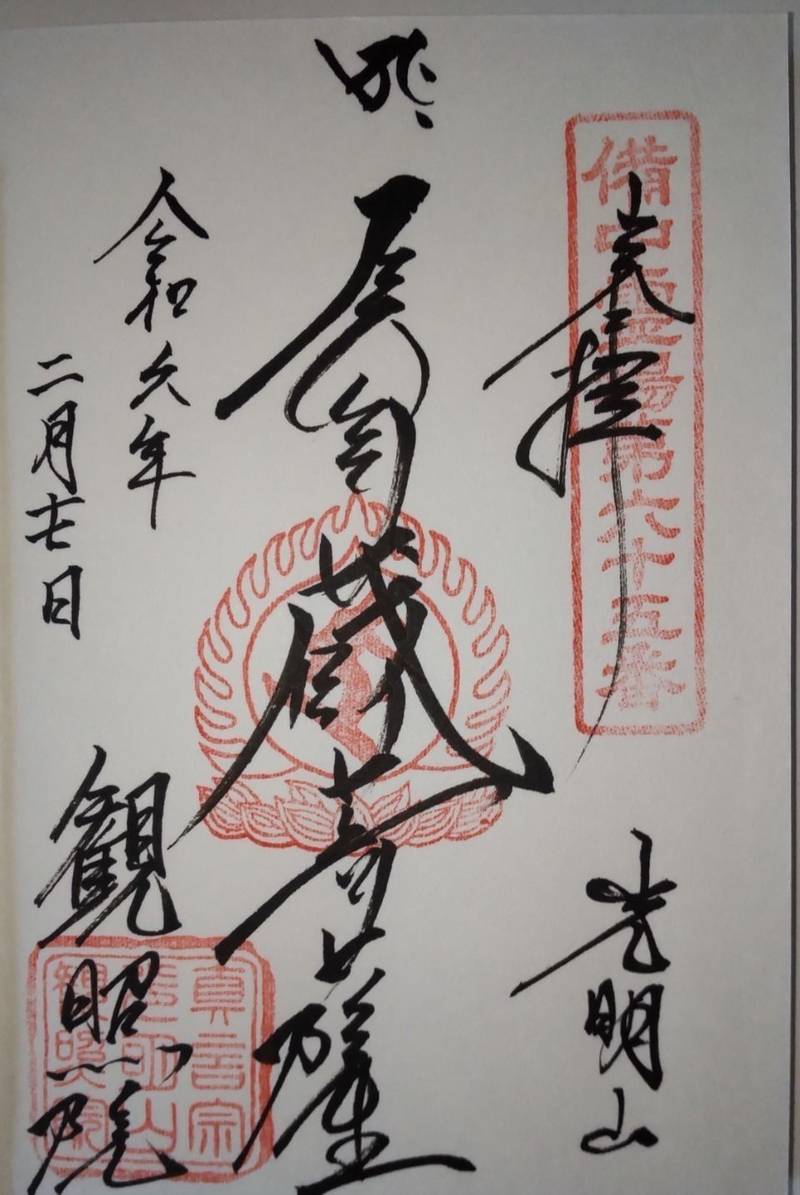 備中霊場第六十五番
奉拝
光明山
虚空蔵菩薩
令和六年
二月十七日
観照院
真言宗
光明山
観照院